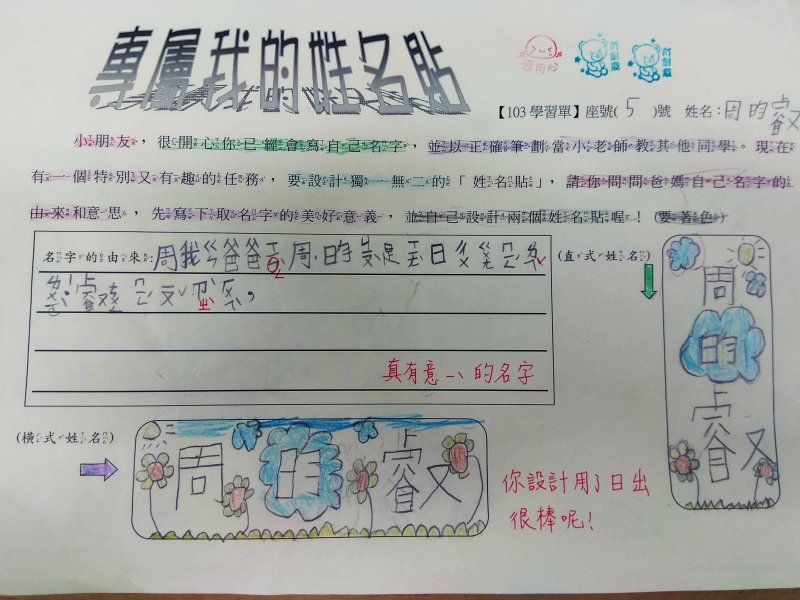 專屬我的姓名貼
很用心
有創意
有創意
【103 學習單】座號( 5 )號 姓名:周昀叡
小朋友,很開心你已經會寫自己名字,並以正確筆劃當小老師教其他同學。現在
有一個特別又有趣的任務,要設計獨一無二的「姓名貼」,請你問問爸媽自己名字的
由來和意思,先寫下取名字的美好意義,並自己設計兩個姓名貼喔!(要著色)
名字的由來:周我ㄍ爸爸
(直式姓名)
真有意ㄙ的名字
周
昀
叡
(橫式姓名)
周昀叡
你設計用了日出
很棒呢!